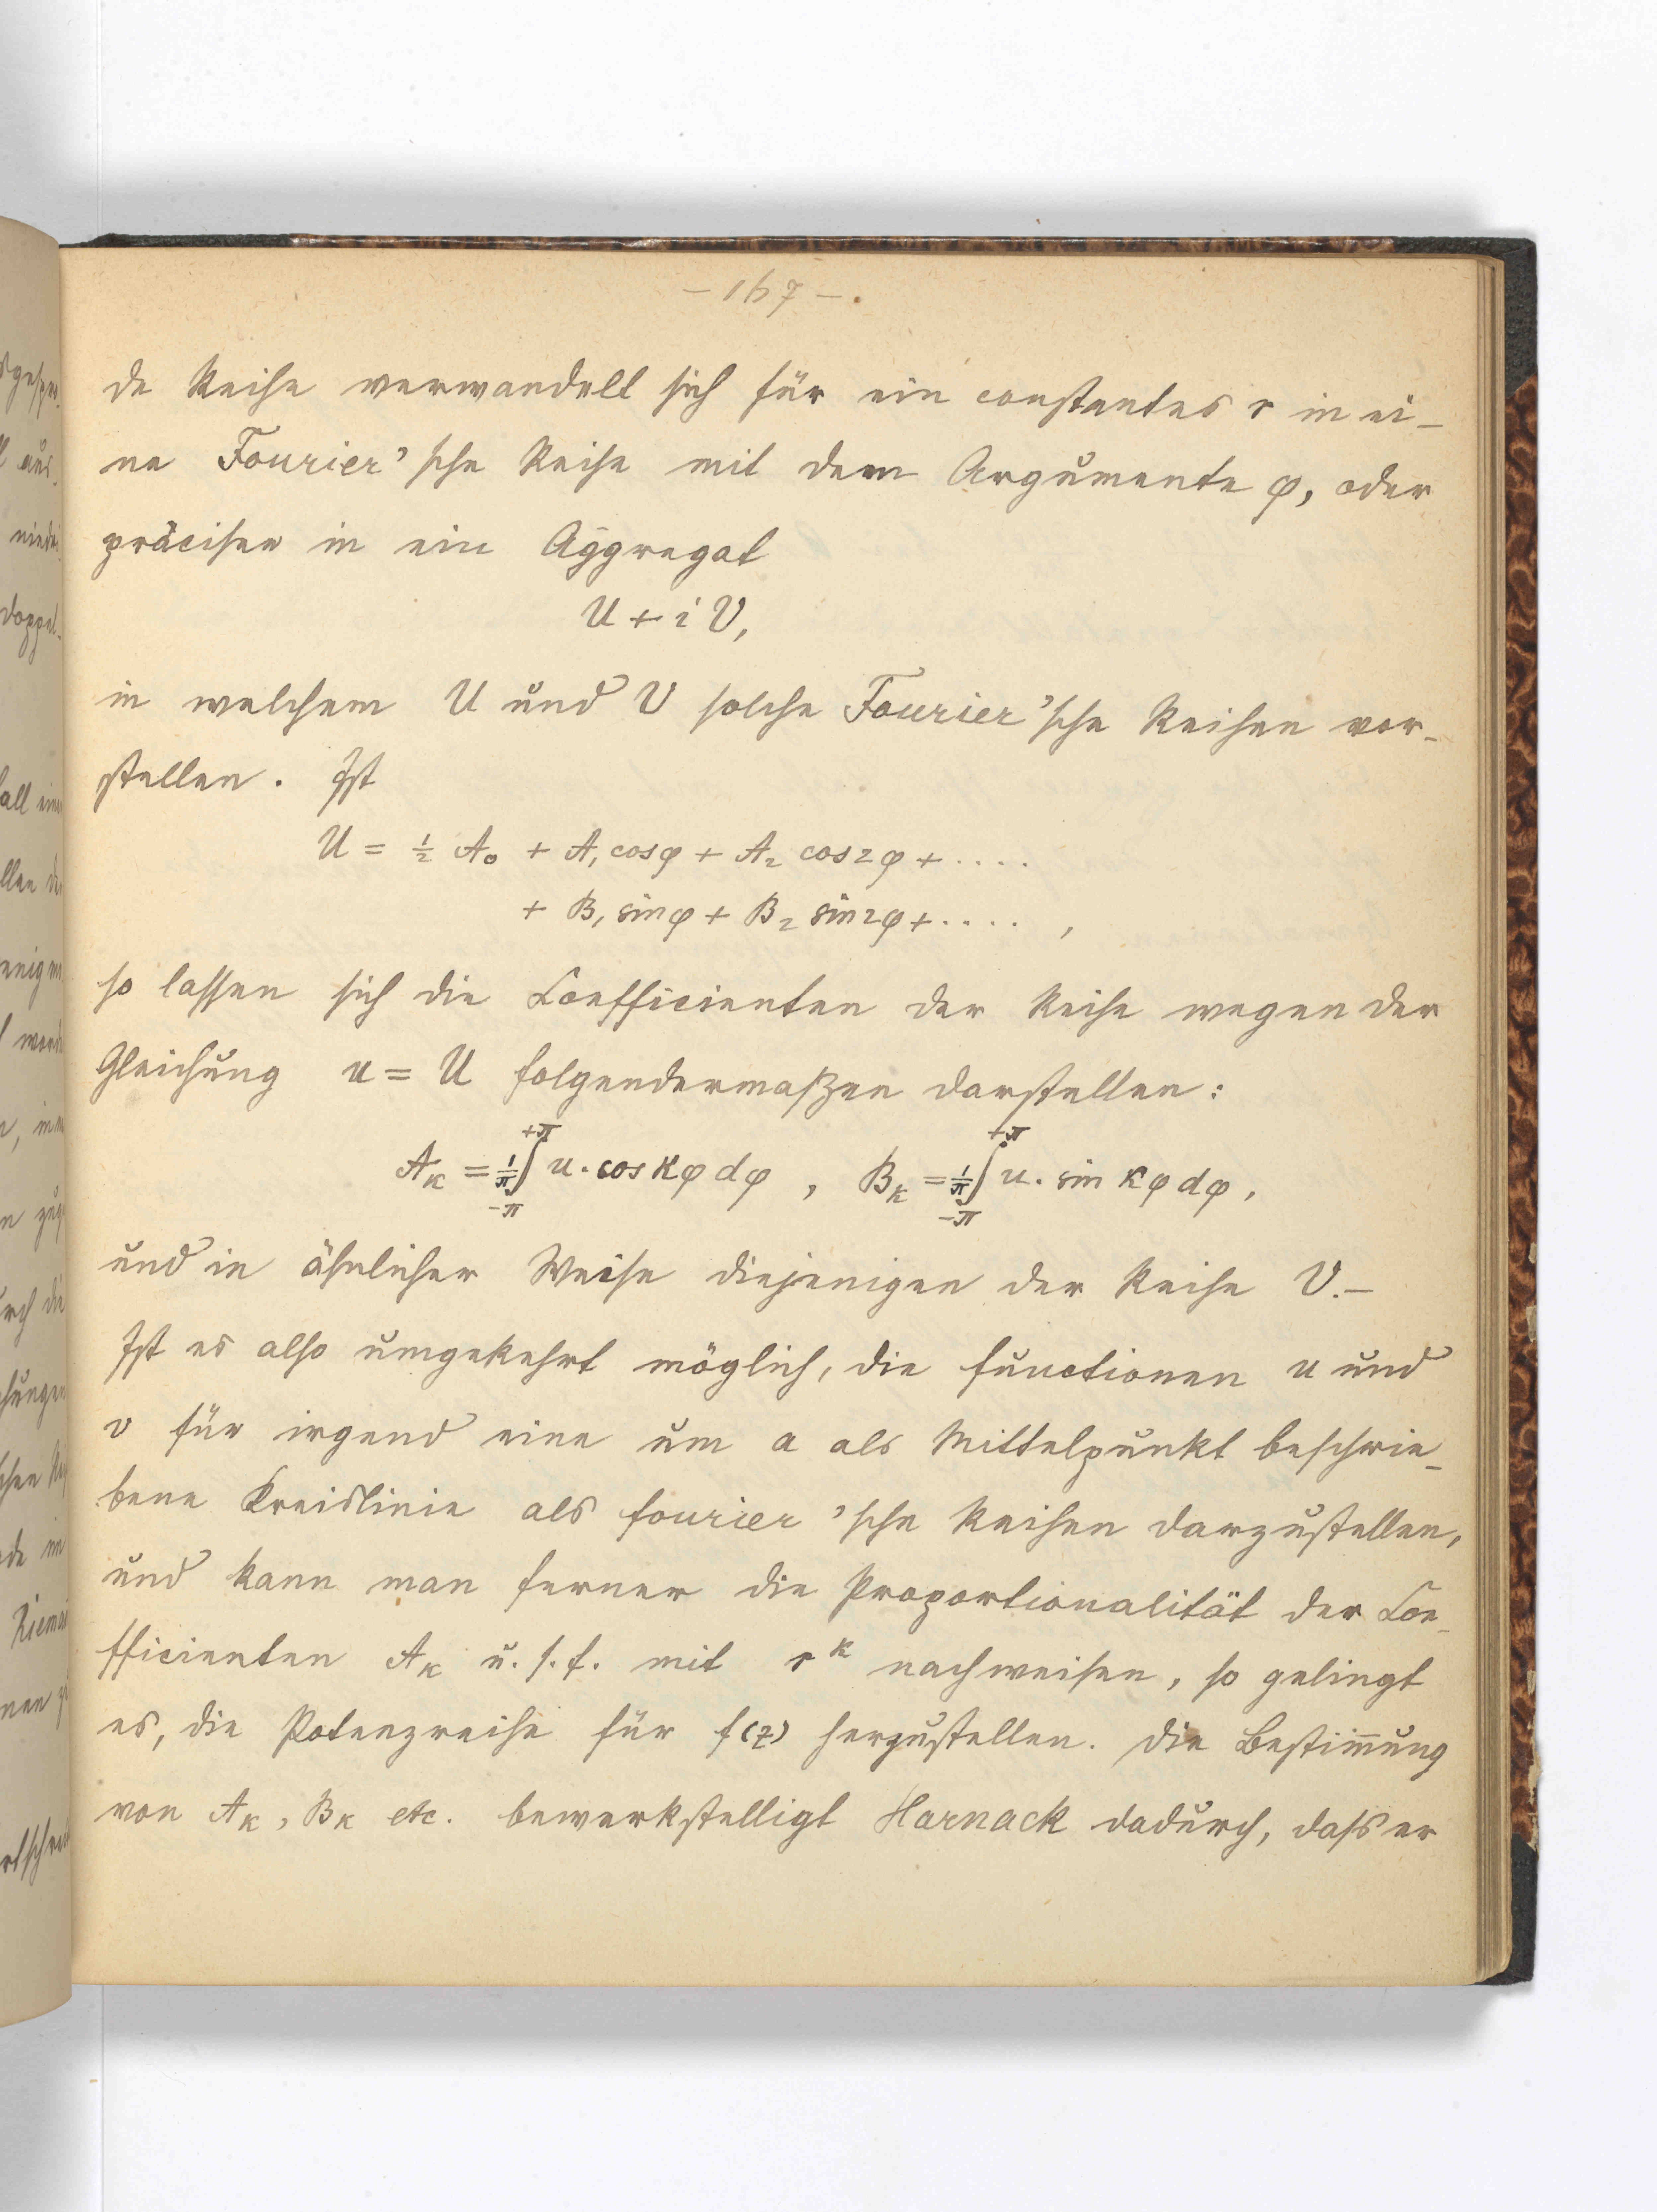 – 167 – .
de Reihe verwandelt sich für ein constantes r in ei-
ne Fourier'sche Reihe mit dem Argumente φ, oder
präciser in ein Aggregat
U + i V,
in welchem U und V solche Fourier'sche Reihen vor-
stellen. Ist
U = ½ A₀ + A₁ cosφ + A₂ cos2φ + ....
+ B₁ sinφ + B₂ sin2φ + .... ,
so lassen sich die Coefficienten der Reihe wegen der
Gleichung u = U folgendermaßen darstellen:
A_k = 1/π ∫_{-π}^{+π} u. cos kφ dφ , B_k = 1/π ∫_{-π}^{+π} u. sin kφ dφ,
und in ähnlicher Weise diejenigen der Reihe V. –
Ist es also umgekehrt möglich, die Functionen u und
v für irgend eine um a als Mittelpunkt beschrie-
bene Kreislinie als Fourier'sche Reihen darzustellen,
und kann man ferner die Proportionalität der Coe-
fficienten A_k u. s. f. mit r^k nachweisen, so gelingt
es, die Potenzreihe für f(z) herzustellen. Die Bestim̅ung
von A_k, B_k etc. bewerkstelligt Harnack dadurch, dass er